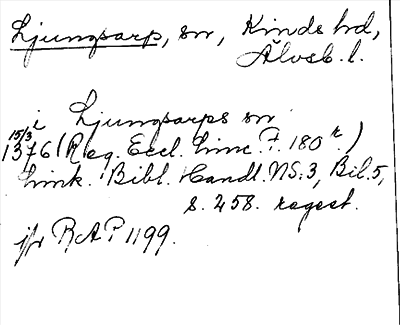 Ljungsarp, sn, Kinds hd,
Älvsb. l.
i Ljungsarps sn
15/3 1376 (Reg. Eccl. Linc. F. 180 r.)
Link. Bibl. Handl. NS:3, Bil. 5,
s. 258. regest.
jfr RAP 1199.